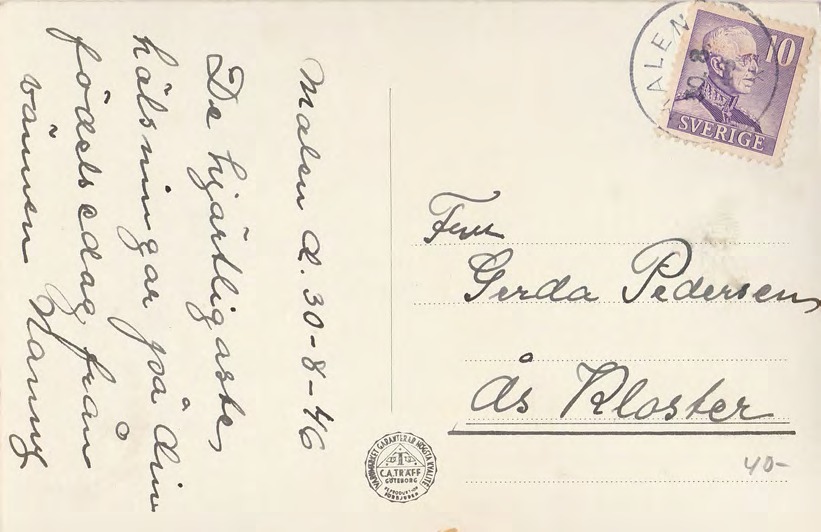 Malen d. 30-8-46
De hjärtligaste,
hälsningar på din
födelsedag från
vännen Nanny
ALEN
30.8.
10
SVERIGE
Fru
Gerda Pedersen,
Ås Kloster
40-
VARUMÄRKET GARANTERAR HÖGSTA KVALITÉ
C.A. TRÄFF
GÖTEBORG
REPRODUKTION
FÖRBJUDEN